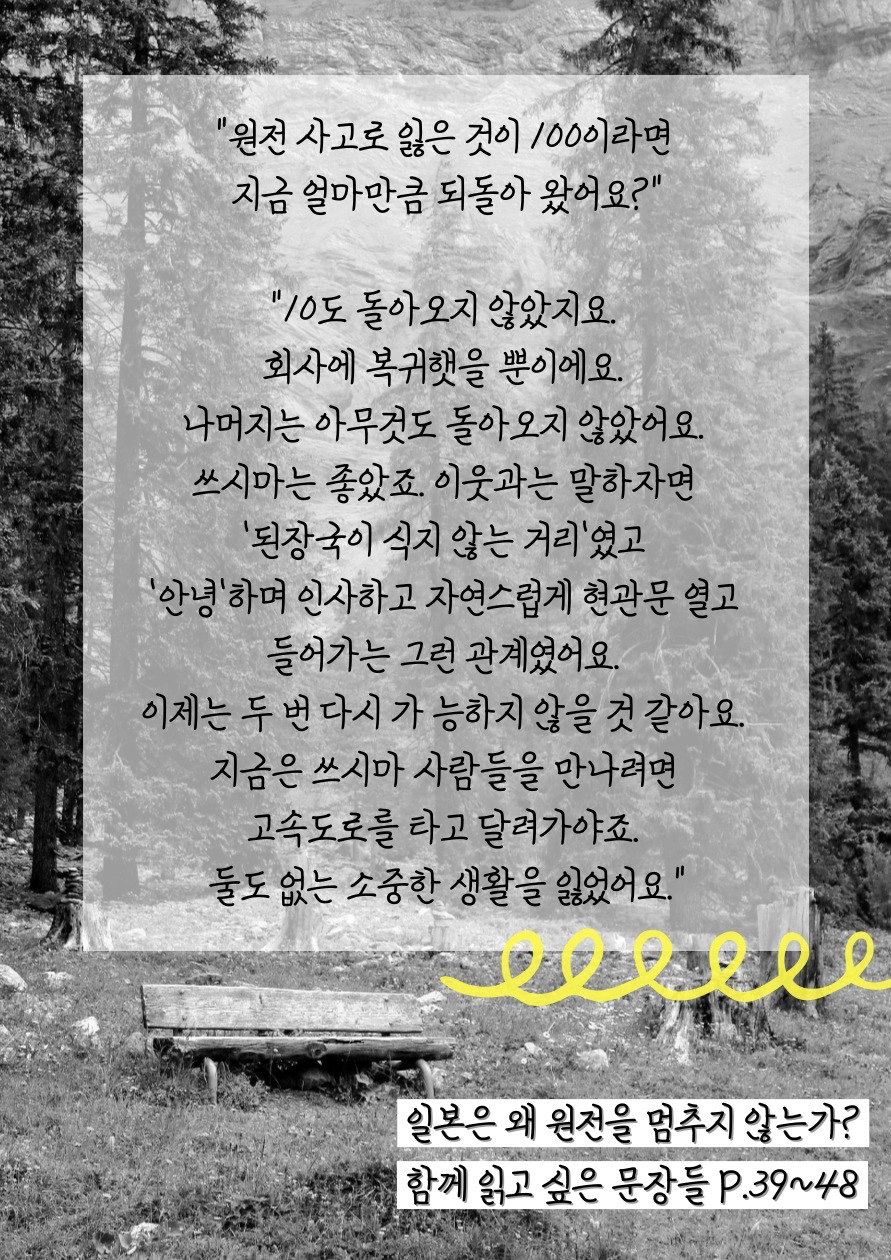 "원전 사고로 잃은 것이 100이라면
지금 얼마만큼 되돌아 왔어요?"
"10도 돌아오지 않았지요.
회사에 복귀햇을 뿐이에요.
나머지는 아무것도 돌아오지 않았어요.
쓰시마는 좋았죠. 이웃과는 말하자면
'된장국이 식지 않는 거리'였고
'안녕'하며 인사하고 자연스럽게 현관문 열고
들어가는 그런 관계였어요.
이제는 두 번 다시 가 능하지 않을 것 같아요.
지금은 쓰시마 사람들을 만나려면
고속도로를 타고 달려가야죠.
둘도 없는 소중한 생활을 잃었어요."
일본은 왜 원전을 멈추지 않는가?
함께 읽고 싶은 문장들 P.39~48